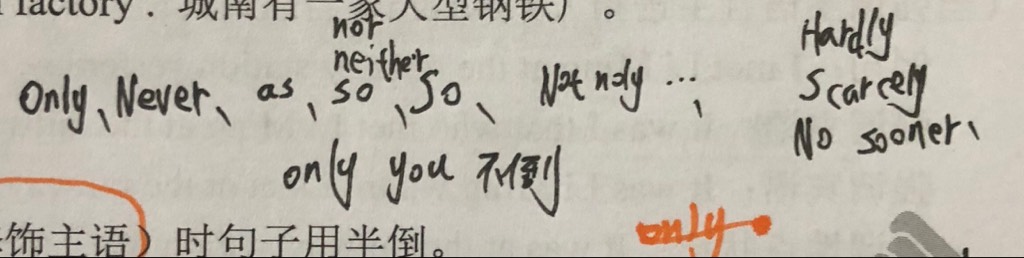 factory. 城南有一家大型钢铁厂。
nor
neither
Hardly
Only、Never、as、so、So、Not noly …、
Scarcely
No sooner、
only you 不倒
饰主语）时句子用半倒。
only